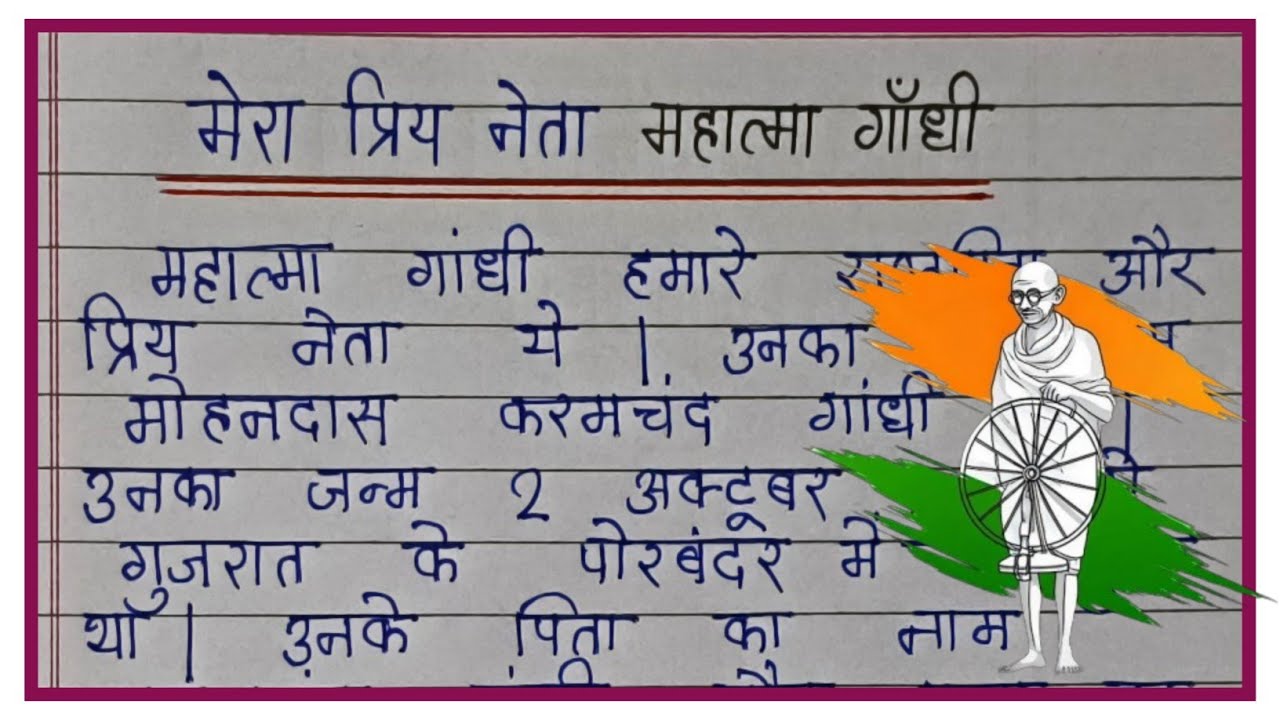 मेरा प्रिय नेता महात्मा गाँधी
महात्मा गांधी हमारे और
प्रिय नेता थे । उनका
मोहनदास करमचंद गांधी ।
उनका जन्म 2 अक्टूबर
गुजरात के पोरबंदर में
था । उनके पिता का नाम